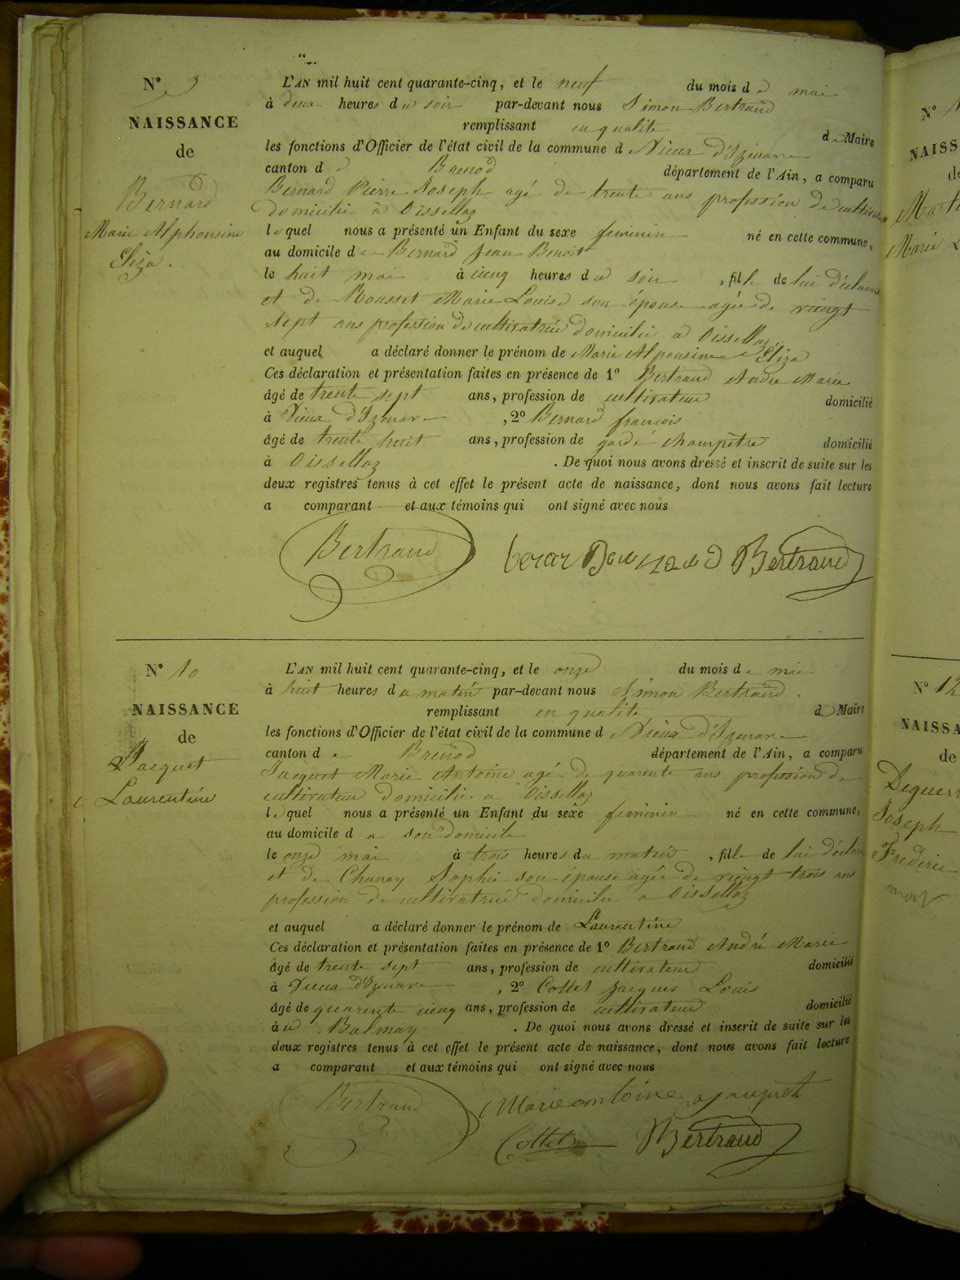 N° 9
NAISSANCE
de
Bernard
Marie Alphonsine
Eliza.
L'AN mil huit cent quarante-cinq, et le neuf du mois de mai
à deux heures du soir par-devant nous Simon Bertrand
remplissant en qualité de Maire
les fonctions d'Officier de l'état civil de la commune de Vieux d'Izenave
canton de Brenod département de l'Ain, a comparu
Bernard Pierre Joseph agé de trente ans profession de cultivateur
domicilié à Oissellaz
lequel nous a présenté un Enfant du sexe feminin né en cette commune,
au domicile de Bernard Jean Benoit
le huit mai à cinq heures du soir, fille de lui déclarant
et de Rousset Marie Louise son épouse agée de vingt
sept ans profession de cultivatrice domicilié à Oissellaz
et auquel a déclaré donner le prénom de Marie Alponsine Eliza
Ces déclaration et présentation faites en présence de 1° Bertrand André Marie
âgé de trente sept ans, profession de cultivateur domicilié
à Vieux d'Izenave, 2° Bernard françois
âgé de trente huit ans, profession de garde champêtre domicilié
à Oissellaz. De quoi nous avons dressé et inscrit de suite sur les
deux registres tenus à cet effet le présent acte de naissance, dont nous avons fait lecture
a comparant et aux témoins qui ont signé avec nous
Bertrand Bertrand
N° 10
NAISSANCE
de
Jacquet
Laurentine
L'AN mil huit cent quarante-cinq, et le onze du mois de mai
à huit heures du matin par-devant nous Simon Bertrand
remplissant en qualité de Maire
les fonctions d'Officier de l'état civil de la commune de Vieux d'Izenave
canton de Brenod département de l'Ain, a comparu
Jacquet Marie Antoine agé de quarente ans profession de
cultivateur domicilié a Oissellaz
lequel nous a présenté un Enfant du sexe feminin né en cette commune,
au domicile d a son domicile
le onze mai à trois heures du matin, fille de lui déclarant
et de Chanay Sophie son epouse agée de vingt trois ans
profession de cultivatrice domicilié a Oissellaz
et auquel a déclaré donner le prénom de Laurentine
Ces déclaration et présentation faites en présence de 1° Bertrand André Marie
âgé de trente sept ans, profession de cultivateur domicilié
à Vieux d'Izenave, 2° Cottet Jacques Louis
âgé de quarente cinq ans, profession de cultivateur domicilié
à Balmay. De quoi nous avons dressé et inscrit de suite sur les
deux registres tenus à cet effet le présent acte de naissance, dont nous avons fait lecture
a comparant et aux témoins qui ont signé avec nous
Bertrand Marie antoine jaquet
Cottet Bertrand
N°
NAISS
de
Marie
N° 12
NAISSA
de
Deguerr
Joseph
Frédéric